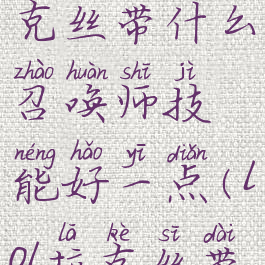 克丝带什么
zhào huàn shī jì
召唤师技
néng hǎo yī diǎn
能好一点(l
lā kè sī dài
ol拉克丝带